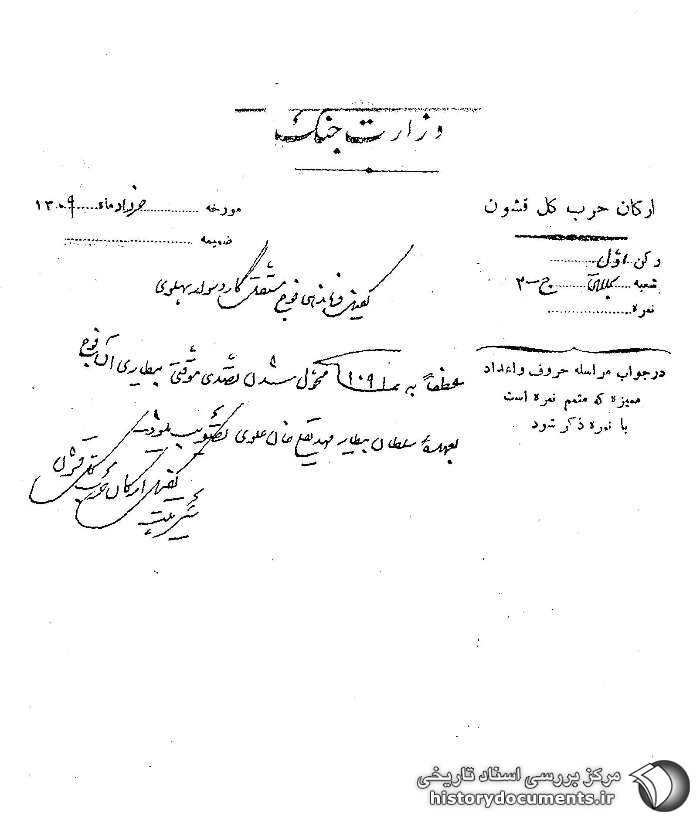 وزارت جنگ
ارکان حرب کل قشون
مورخه خرداد ماه ۱۳۰۹
ضمیمه
رکن اول
شعبه ج-۳
نمره
در جواب مراسله حروف و اعداد
ممیزه که متمم نمره است
با نمره ذکر شود
کفیل فرماندهی فوج مستقل گارد سوار پهلوی
عطفاً به نمره ۱۰۹۱ محول شدن تصدی موقتی بیطاری آن فوج
بعهدهٔ سلطان بیطار مهدیقلی خان علوی تصویب
کفیل ارکان حرب کل قشون
مرکز بررسی اسناد تاریخی
historydocuments.ir